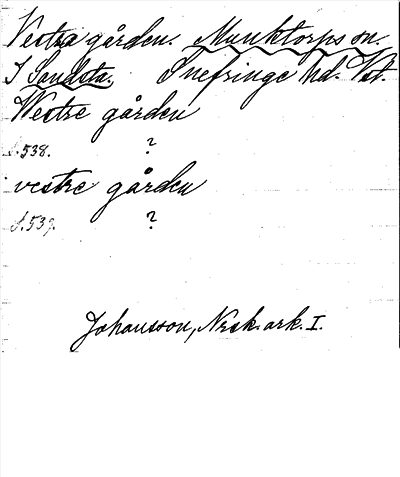 Vestra gården. Munktorps sn.
I Sandsta. Snefringe hd. Vst.
Westre gården
s.538. ?
vestre gården
s.537. ?
Johansson, Nesk. ark. I.